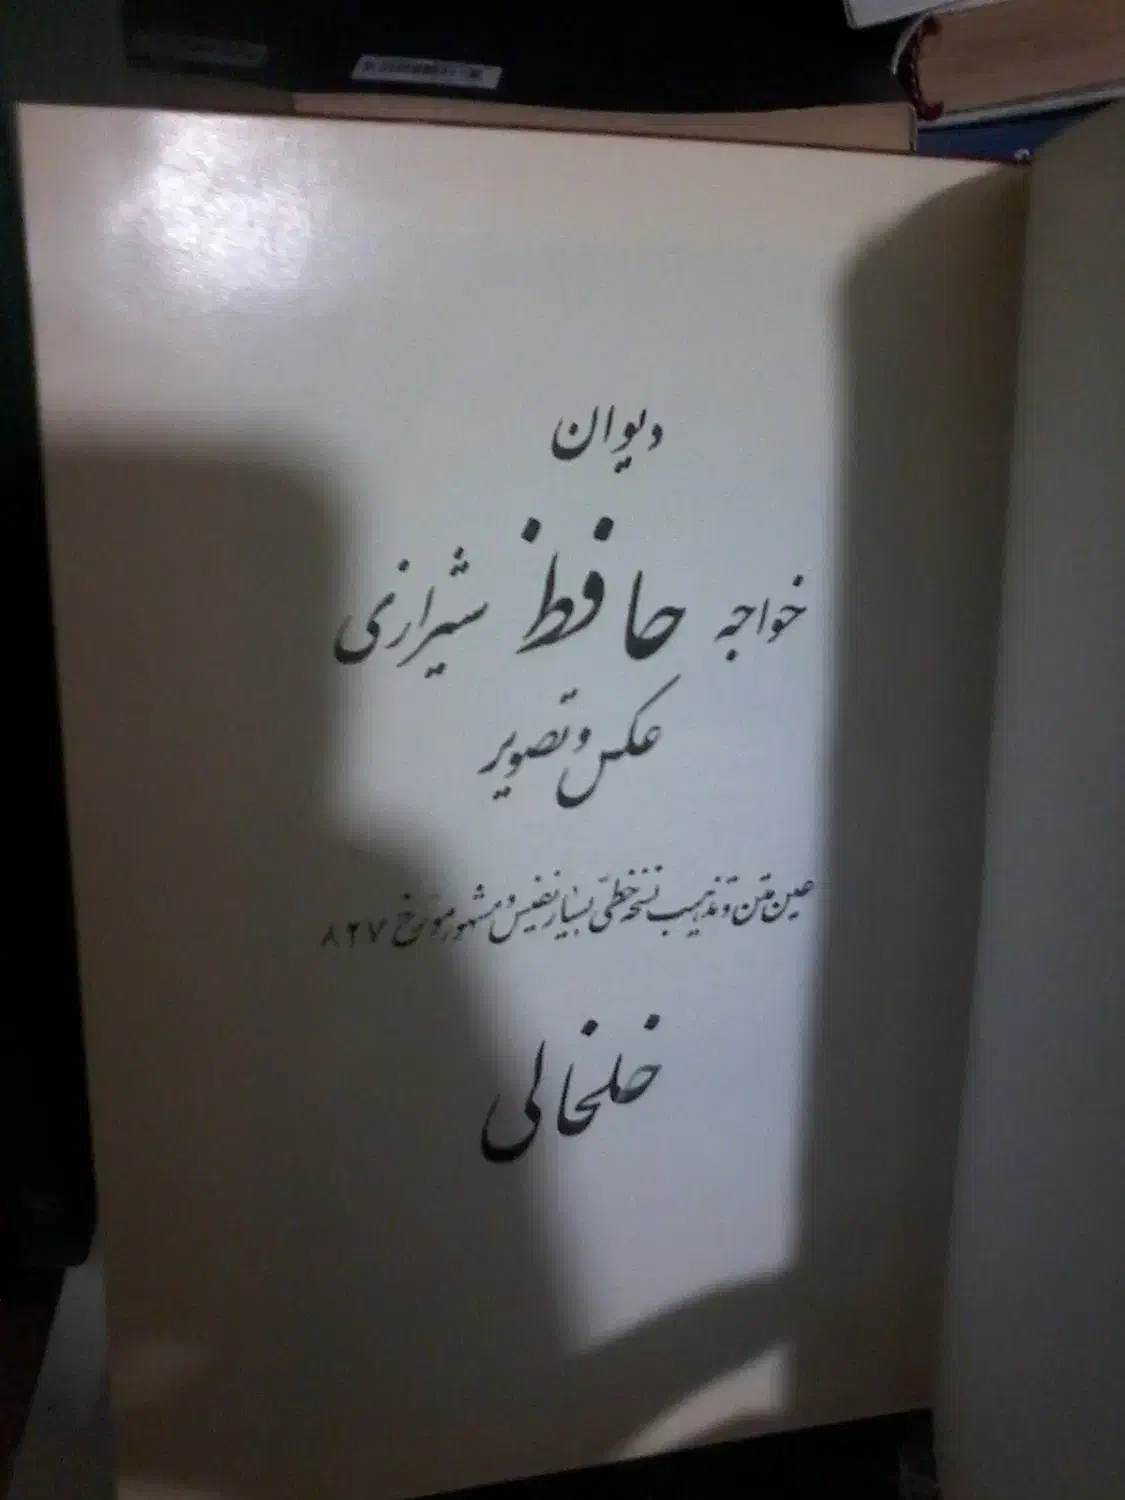 دیوان
خواجه حافظ شیرازی
عکس و تصویر
عین متن و تذهیب نسخه خطی بسیار نفیس و مشهور مورخ ۸۲۷
خلخالی